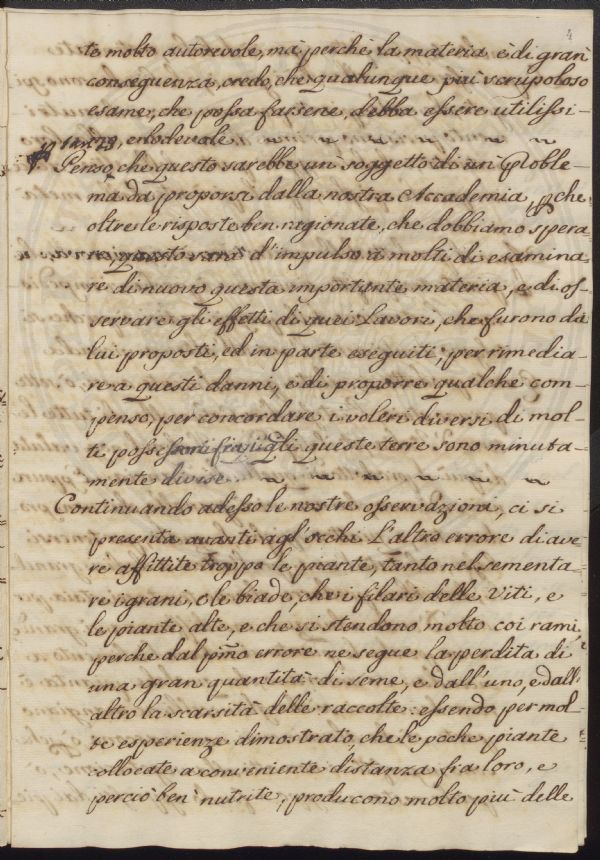 4
te molto autorevole, mà perchè la materia è di gran
conseguenza, credo, che qualunque più scrupoloso
esame, che possa farsene, debba essere utilissi-
mo, e lodevole
Penso, che questo sarebbe un soggetto di un Proble-
ma da proporsi dalla nostra Accademia, pche
oltre le risposte ben ragionate, che dobbiamo spera
re, questo d'impulso à molti di esamina-
re di nuovo questa importante materia, e di os-
servare gli effetti di quei Lavori, che furono da
lui proposti, ed in parte eseguiti, per rimedia-
re a questi danni, e di proporre qualche com-
penso, per concordare i voleri diversi di mol-
ti possessori frà i quali queste terre sono minuta-
mente divise
Continuando adesso le nostre osservazioni, ci si
presenta avanti agl'occhi L'altro errore di ave-
re affittite troppo le piante, tanto nel sementa-
re i grani, e le biade, che i filari delle Viti, e
le piante alte, e che si stendono molto coi rami,
perche dal pmo errore ne segue la perdita di
una gran quantità di seme, e dall'uno, e dall'
altro la scarsità delle raccolte: essendo per mol-
te esperienze dimostrato, che le poche piante
collocate a conveniente distanza fra loro, e
perciò ben nutrite, producono molto più delle